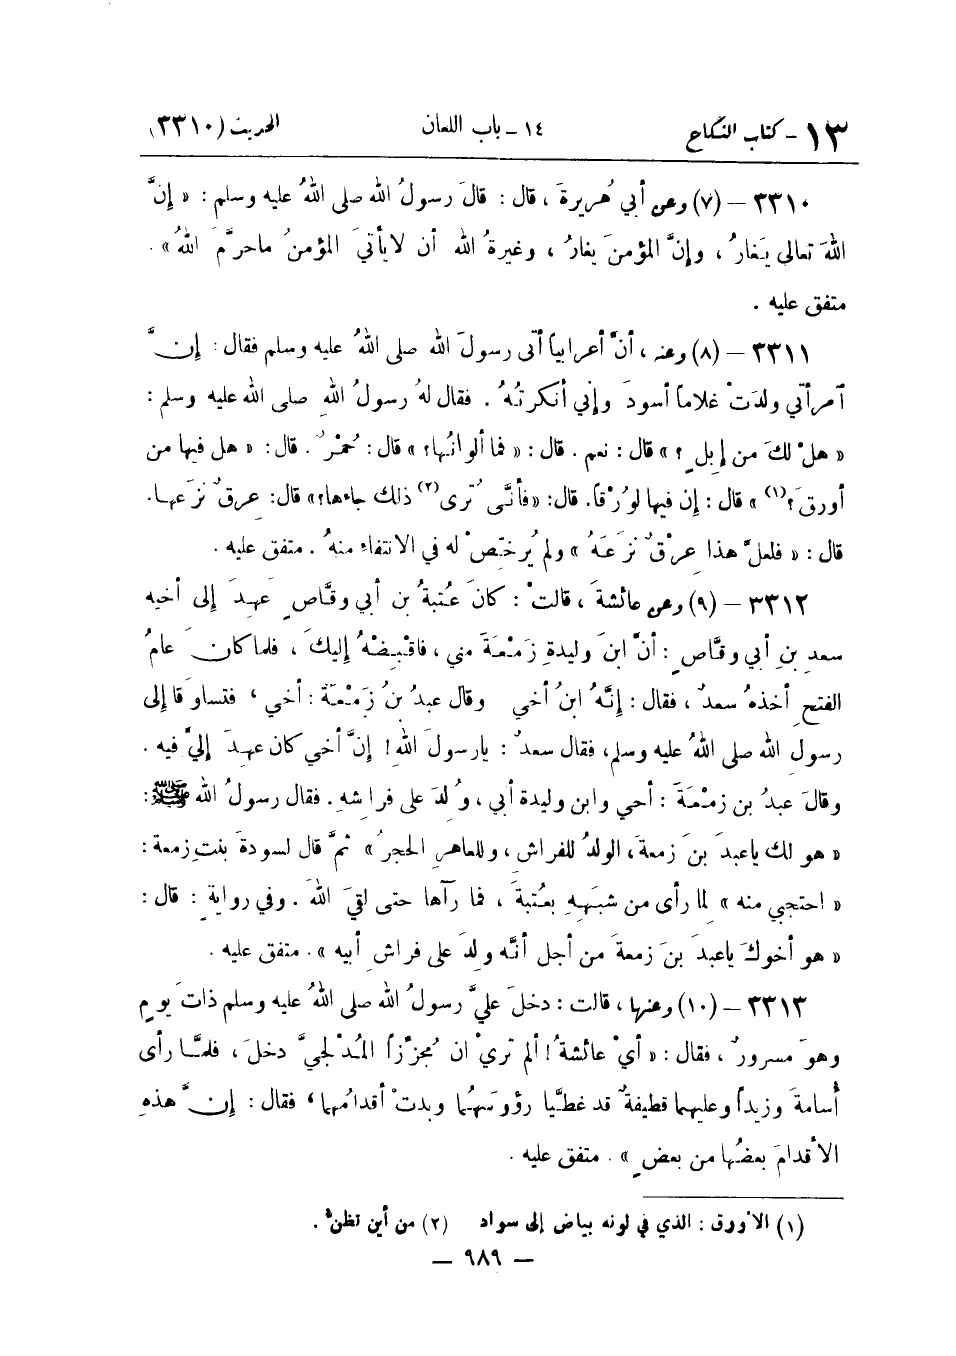 ١٣ - كتاب النكاح ١٤ - باب اللعان الحديث (٣٣١٠)
٣٣١٠ - (٧) وعن أبي هُريرةَ ، قال : قالَ رسولُ الله صلى اللهُ عليه وسلم : « إنَّ
اللهَ تعالى يَغارُ ، وإنَّ المؤمنَ يغارُ ، وغيرةُ الله أن لا يأتيَ المؤمنُ ما حرَّمَ اللهُ » .
متفق عليه .
٣٣١١ - (٨) وعنه ، أنَّ أعرابياً أتى رسولَ الله صلى اللهُ عليه وسلم فقال : إنَّ
امرأتي ولدَتْ غلاماً أسودَ وإني أنكرتُهُ . فقال لهُ رسولُ اللهِ صلى الله عليه وسلم :
« هلْ لكَ من إبلٍ ؟ » قال : نعم . قال : « فما ألوانُها؟ » قال : حُمْرٌ . قال : « هل فيها من
أورقَ؟(١) » قال : إن فيها لوُرْقاً. قال: «فأنَّى تُرى(٢) ذلك جاءها؟» قال: عِرقٌ نزَعها.
قال : « فلعلَّ هذا عِرْقٌ نزَعَهُ » ولم يُرخِّصْ له في الانتفاء منهُ . متفق عليه .
٣٣١٢ - (٩) وعن عائشةَ ، قالتْ : كانَ عُتبةُ بن أبي وقَّاصٍ عَهِدَ إلى أخيه
سعدِ بنِ أبي وقَّاصٍ : أنَّ ابنَ وليدةِ زَمْعَةَ مني ، فاقْبِضْهُ إليكَ ، فلما كانَ عامُ
الفتحِ أخذهُ سعدٌ ، فقال : إنَّهُ ابنُ أخي وقال عبدُ بنُ زَمْعَةَ : أخي ، فتساوَقا إلى
رسولِ الله صلى اللهُ عليه وسلم، فقال سعدٌ : يارسولَ الله! إنَّ أخي كان عهِدَ إليَّ فيه .
وقالَ عبدُ بن زمْعَةَ : أخي وابن وليدة أبي ، وُلدَ على فراشِهِ. فقال رسولُ الله ﷺ :
« هو لك ياعبدَ بنَ زمعةَ، الولدُ للفراش ، وللعاهرِ الحجرُ » ثمَّ قال لسودةَ بنتِ زمعة :
« احتجبي منه » لما رأى من شبَهِهِ بعُتبةَ ، فما رآها حتى لقيَ اللهَ . وفي روايةٍ : قال :
« هو أخوكَ ياعبدَ بنَ زمعةَ من أجل أنَّه ولِدَ على فراشِ أبيه ». متفق عليه .
٣٣١٣ - (١٠) وعنها ، قالت : دخلَ عليَّ رسولُ الله صلى اللهُ عليه وسلم ذاتَ يومٍ
وهوَ مسرورٌ ، فقال : « أيْ عائشةُ! ألم تريْ ان مُجزِّزاً المُدْلجيَّ دخلَ ، فلمَّا رأى
أُسامةَ وزيداً وعليهما قطيفةٌ قد غطَّيا رؤوسَهُما وبدتْ أقدامُهما ، فقال : إنَّ هذهِ
الأقدامَ بعضُها من بعضٍ » . متفق عليه .
(١) الأورق : الذي في لونه بياض إلى سواد (٢) من أين تظن .
— ٩٨٩ —